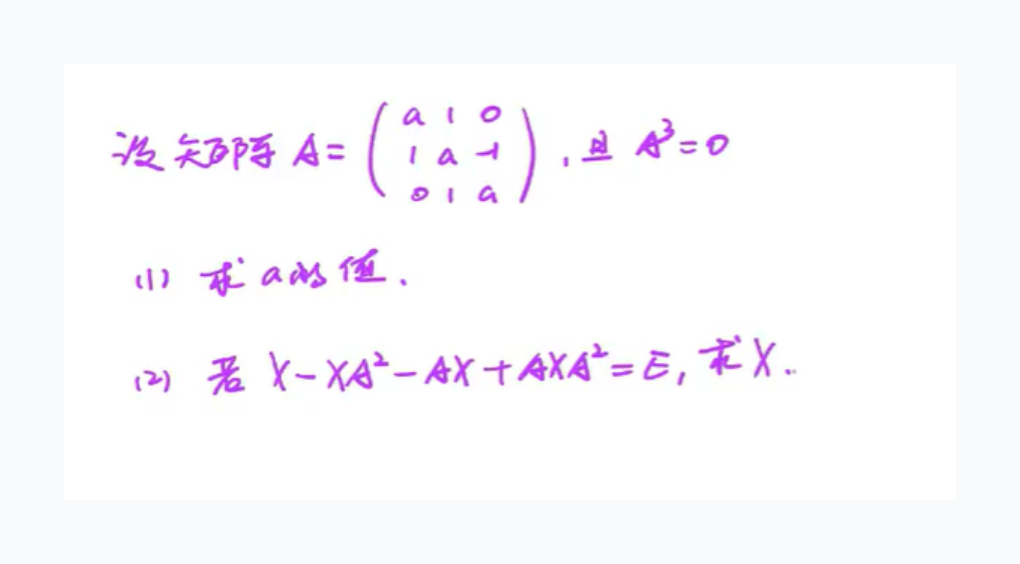 设矩阵 A = ( a 1 0
1 a -1
0 1 a ) , 且 A³=0
(1) 求a的值.
(2) 若 X-XA²-AX+AXA²=E, 求X.